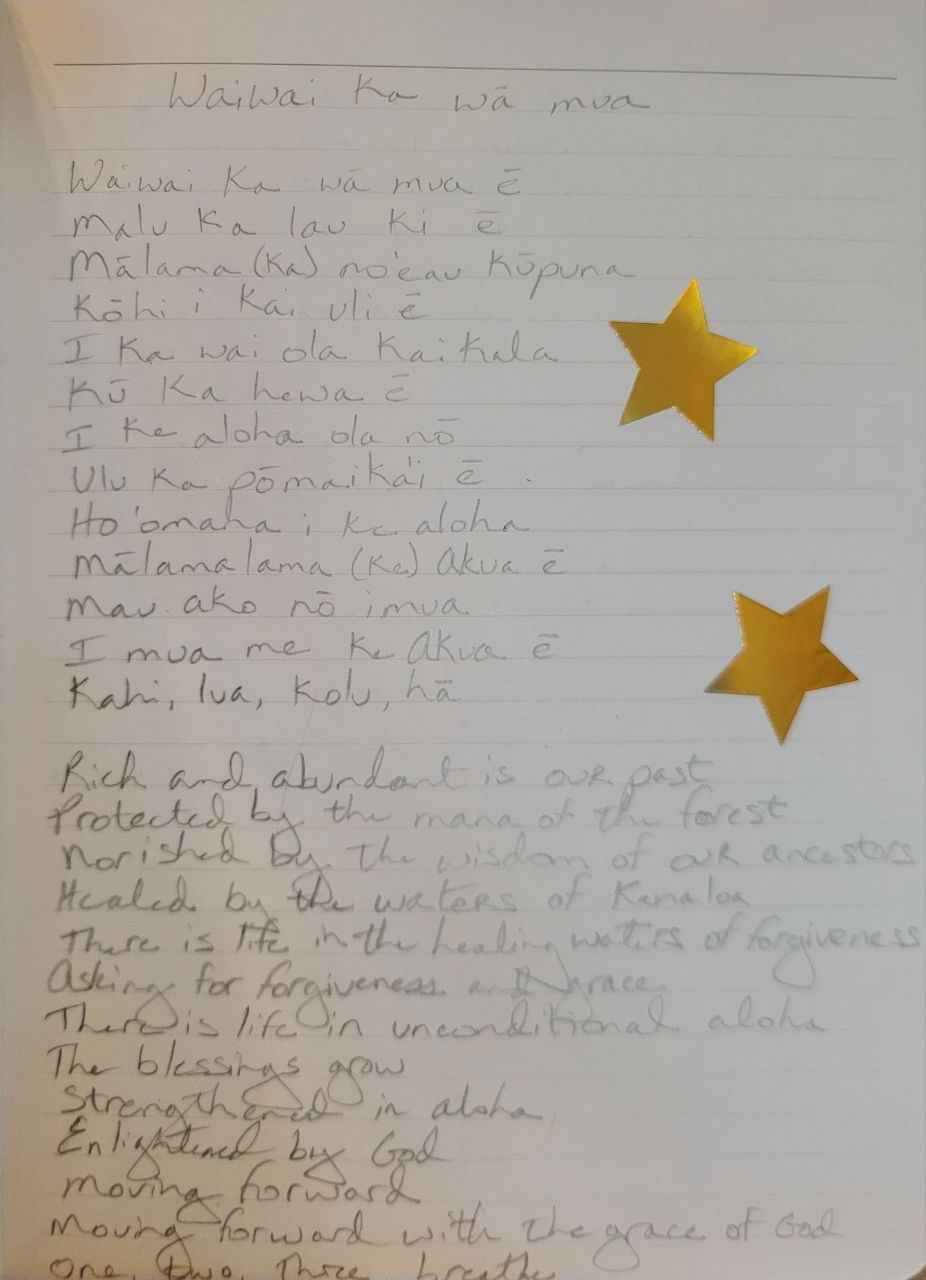 Waiwai Ka wā mua
Waiwai Ka wā mua ē
Malu Ka lau Ki ē
Mālama (Ka) no'eau Kūpuna
Kōhi i Kai uli ē
I Ka wai ola Kai Kala
Kū Ka hewa ē
I Ke aloha ola nō
Ulu Ka pōmaika'i ē
Ho'omaha i Ke aloha
Mālamalama (Ke) Akua ē
Mau ako nō imua
I mua me Ke Akua ē
Kahi, lua, Kolu, hā
Rich and abundant is our past
Protected by the mana of the forest
Norished by the wisdom of our ancestors
Healed by the waters of Kanaloa
There is life in the healing waters of forgiveness
Asking for forgiveness and grace
There is life in unconditional aloha
The blessings grow
Strengthened in aloha
Enlightened by God
Moving forward
Moving forward with the grace of God
One, two, three, breathe